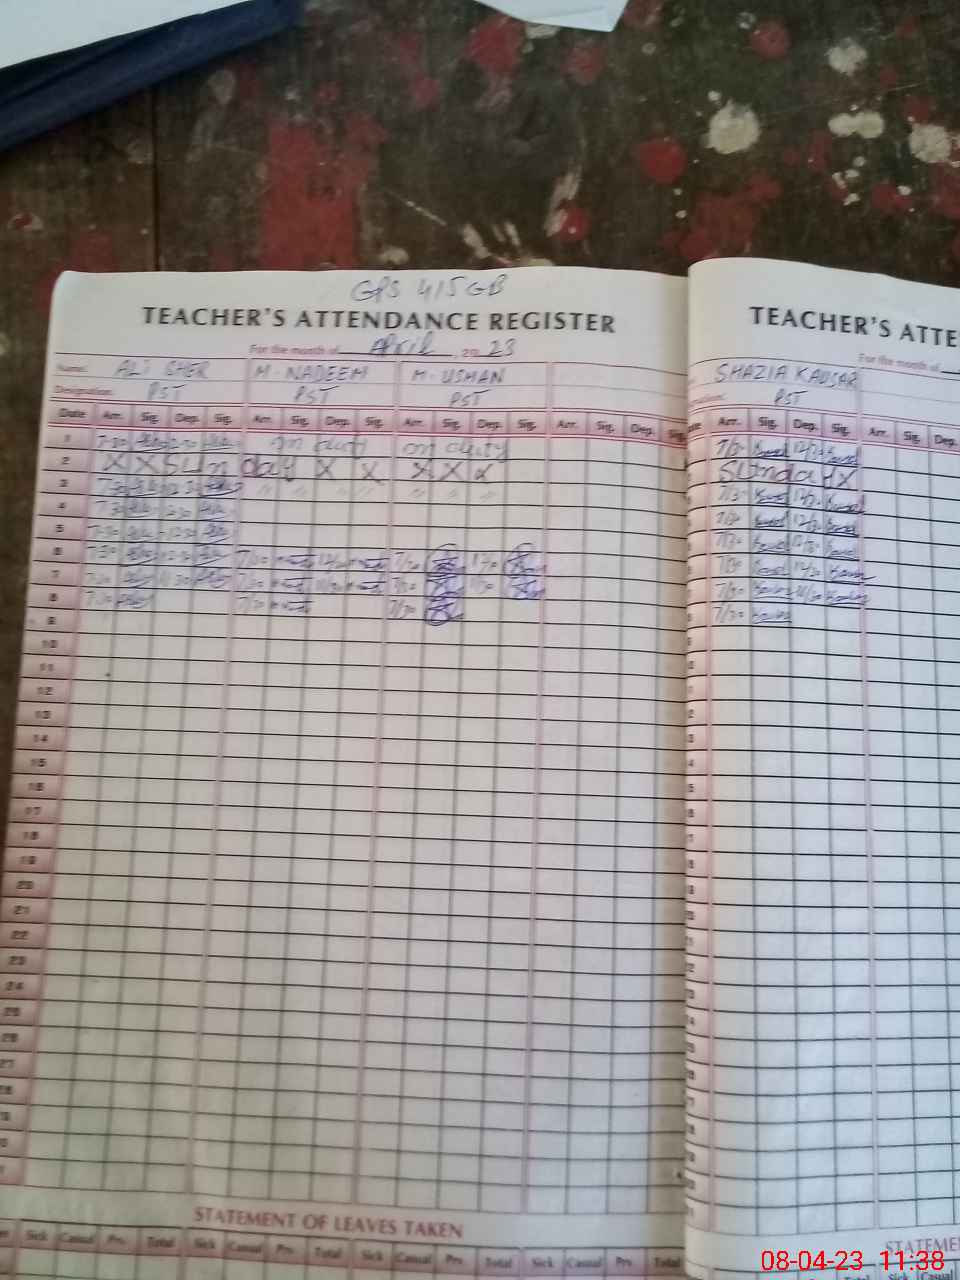 GPS 415 GB
TEACHER'S ATTENDANCE REGISTER
For the month of April, 20 23
Name: ALI SHER M. NADEEM M. USMAN
Designation: PST PST PST
Date Arr. Sig. Dep. Sig. Arr. Sig. Dep. Sig. Arr. Sig. Dep. Sig. Arr. Sig. Dep. Sig.
1 7-30 12-30 on duty on duty
2 X X Sunday X X X X X
3 7-30 12-30 " " " " " "
4 7-30 12-30
5 7-30 12-30
6 7-30 12-30 7/30 12/30 7/30 12/
7 7-30 11-30 7/30 11/30 7/30
8 7-30 7/30 7/30
9
10
11
12
13
14
15
16
17
18
19
20
21
22
23
24
25
26
27
28
STATEMENT OF LEAVES TAKEN
Sick Casual Prv. Total Sick Casual Prv. Total Sick Casual Prv. Total Sick Casual Prv. Total
TEACHER'S ATTE
For the month of
SHAZIA KAUSAR
PST
Arr. Sig. Dep. Sig. Arr. Sig. Dep.
7/30 12/30
Sunday X
7/30 12/30
7/30 12/30
7/30 12/30
7/30 12/30
7/30 11/30
7/30
STATEME
Total Sick Casual
08-04-23 11:38